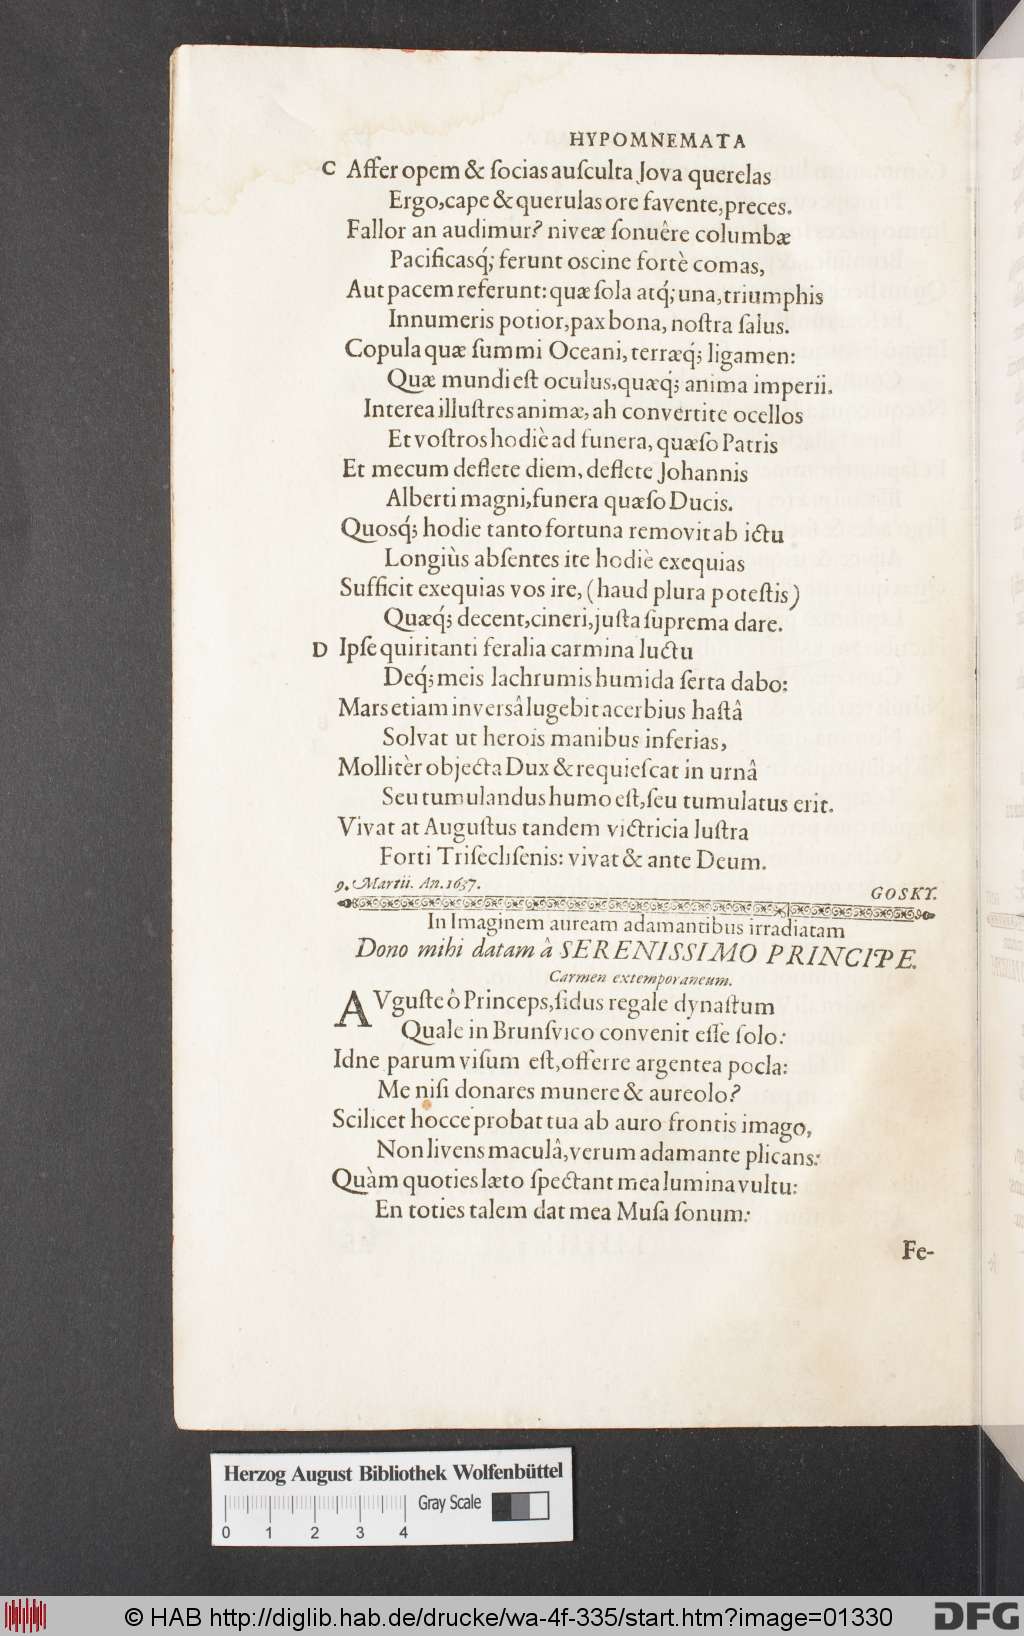 HYPOMNEMATA
C Affer opem & ſocias auſculta Jova querelas
Ergo, cape & querulas ore favente, preces.
Fallor an audimur? niveæ ſonuêre columbæ
Pacificasq́; ferunt oscine fortè comas,
Aut pacem referunt: quæ ſola atq́; una, triumphis
Innumeris potior, pax bona, noſtra ſalus.
Copula quæ ſummi Oceani, terræq́; ligamen:
Quæ mundi eſt oculus, quæq́; anima imperii.
Interea illuſtres animæ, ah convertite ocellos
Et voſtros hodiè ad funera, quæſo Patris
Et mecum deflete diem, deflete Johannis
Alberti magni, funera quæſo Ducis.
Quosq́; hodie tanto fortuna removit ab ictu
Longiùs abſentes ite hodiè exequias
Sufficit exequias vos ire, (haud plura poteſtis)
Quæq́; decent, cineri, juſta ſuprema dare.
D Ipſe quiritanti feralia carmina luctu
Deq́; meis lachrumis humida ſerta dabo:
Mars etiam inversâ lugebit acerbius haſtâ
Solvat ut herois manibus inferias,
Mollitèr objecta Dux & requieſcat in urnâ
Seu tumulandus humo eſt, ſeu tumulatus erit.
Vivat at Auguſtus tandem victricia luſtra
Forti Triſecliſenis: vivat & ante Deum.
9. Martii. An. 1637.
GOSKY.
In Imaginem auream adamantibus irradiatam
Dono mihi datam â SERENISSIMO PRINCIPE.
Carmen extemporaneum.
AVguſte ô Princeps, ſidus regale dynaſtum
Quale in Brunſvico convenit eſſe ſolo:
Idne parum viſum eſt, offerre argentea pocla:
Me niſi donares munere & aureolo?
Scilicet hocce probat tua ab auro frontis imago,
Non livens maculâ, verum adamante plicans:
Quàm quoties læto ſpectant mea lumina vultu:
En toties talem dat mea Muſa ſonum:
Fe-
Herzog August Bibliothek Wolfenbüttel
Gray Scale
0 1 2 3 4
© HAB http://diglib.hab.de/drucke/wa-4f-335/start.htm?image=01330
DFG